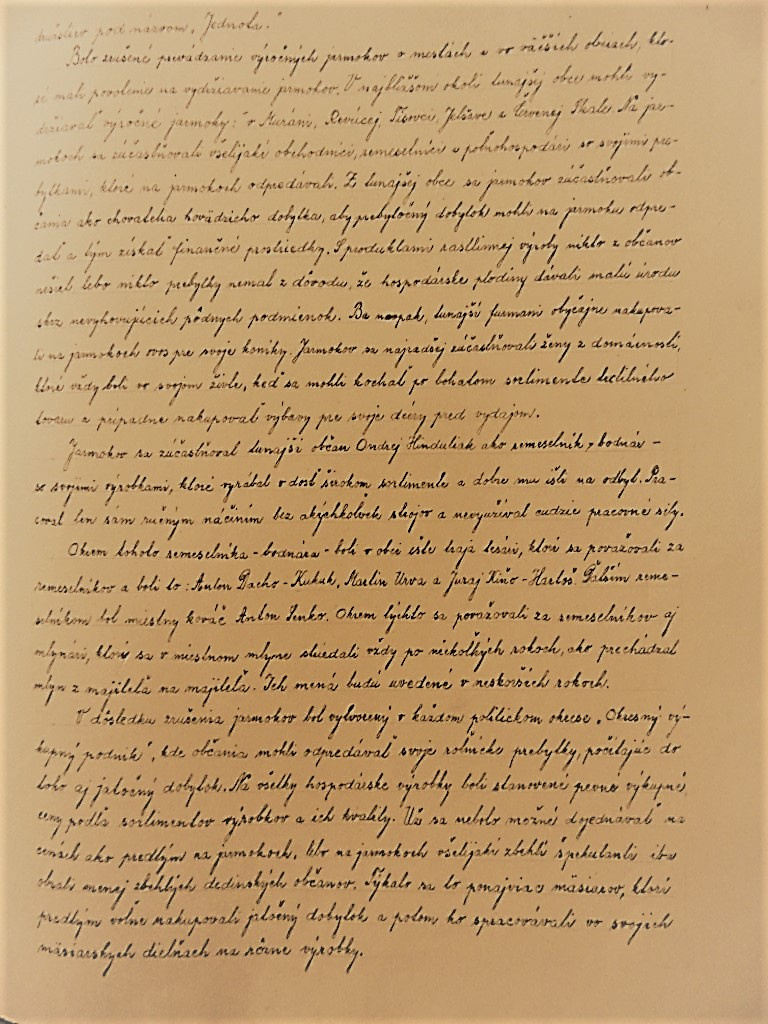 družstvo pod názvom „Jednota."
Bolo zrušené prevádzanie výročných jarmokov v mestách a vo väčších obciach, kto-
ré mali povolenie na vydržiavanie jarmokov. V najbližšom okolí tunajšej obce mohli vy-
držiavať výročné jarmoky: v Muráni, Revúcej, Tisovci, Jelšave a Červenej Skale. Na jar-
mokoch sa zúčastňovali všelijakí obchodníci, remeselníci a poľnohospodári so svojimi pre-
bytkami, ktoré na jarmokoch odpredávali. Z tunajšej obce sa jarmokov zúčastňovali ob-
čania ako chovatelia hovädzieho dobytka, aby prebytočný dobytok mohli na jarmoku odpre-
dať a tým získať finančné prostriedky. S produktami rastlinnej výroby nikto z občanov
nešiel lebo nikto prebytky nemal z dôvodu, že hospodárske plodiny dávali malú úrodu
skrz nevyhovujúcich pôdnych podmienok. Ba naopak, tunajší furmani obyčajne nakupova-
li na jarmokoch ovos pre svoje koníky. Jarmokov sa najradšej zúčastňovali ženy z domácnosti,
ktoré vždy boli vo svojom živle, keď sa mohli kochať po bohatom sortimente textilného
tovaru a prípadne nakupovať výbavy pre svoje dcéry pred vydajom.
Jarmokov sa zúčastňoval tunajší občan Ondrej Hinduliak ako remeselník, bodnár -
so svojimi výrobkami, ktoré vyrábal v dosť širokom sortimente a dobre mu išli na odbyt. Pra-
coval len sám ručným náčiním bez akýchkoľvek strojov a nevyužíval cudzie pracovné sily.
Okrem tohoto remeselníka - bodnára - boli v obci ešte traja tesári, ktorí sa považovali za
remeselníkov a boli to: Anton Dacho - Kukuk, Martin Urva a Juraj Kňo - Hartoš. Ďalším reme-
selníkom bol miestny kováč Anton Senko. Okrem týchto sa považovali za remeselníkov aj
mlynári, ktorí sa v miestnom mlyne striedali vždy po niekoľkých rokoch, ako prechádzal
mlyn z majiteľa na majiteľa. Ich mená budú uvedené v neskorších rokoch.
V dôsledku zrušenia jarmokov bol vytvorený v každom politickom okrese „Okresný vý-
kupný podnik", kde občania mohli odpredávať svoje roľnícke prebytky, počítajúc do
toho aj jatočný dobytok. Na všetky hospodárske výrobky boli stanovené pevné výkupné
ceny podľa sortimentov výrobkov a ich kvality. Už sa nebolo možné dojednávať na
cenách ako predtým na jarmokoch, lebo na jarmokoch všelijakí zbehlí špekulanti iba
obrali menej zbehlých dedinských občanov. Týkalo sa to ponajviac mäsiarov, ktorí
predtým voľne nakupovali jatočný dobytok a potom ho spracovávali vo svojich
mäsiarskych dielňach na rôzne výrobky.